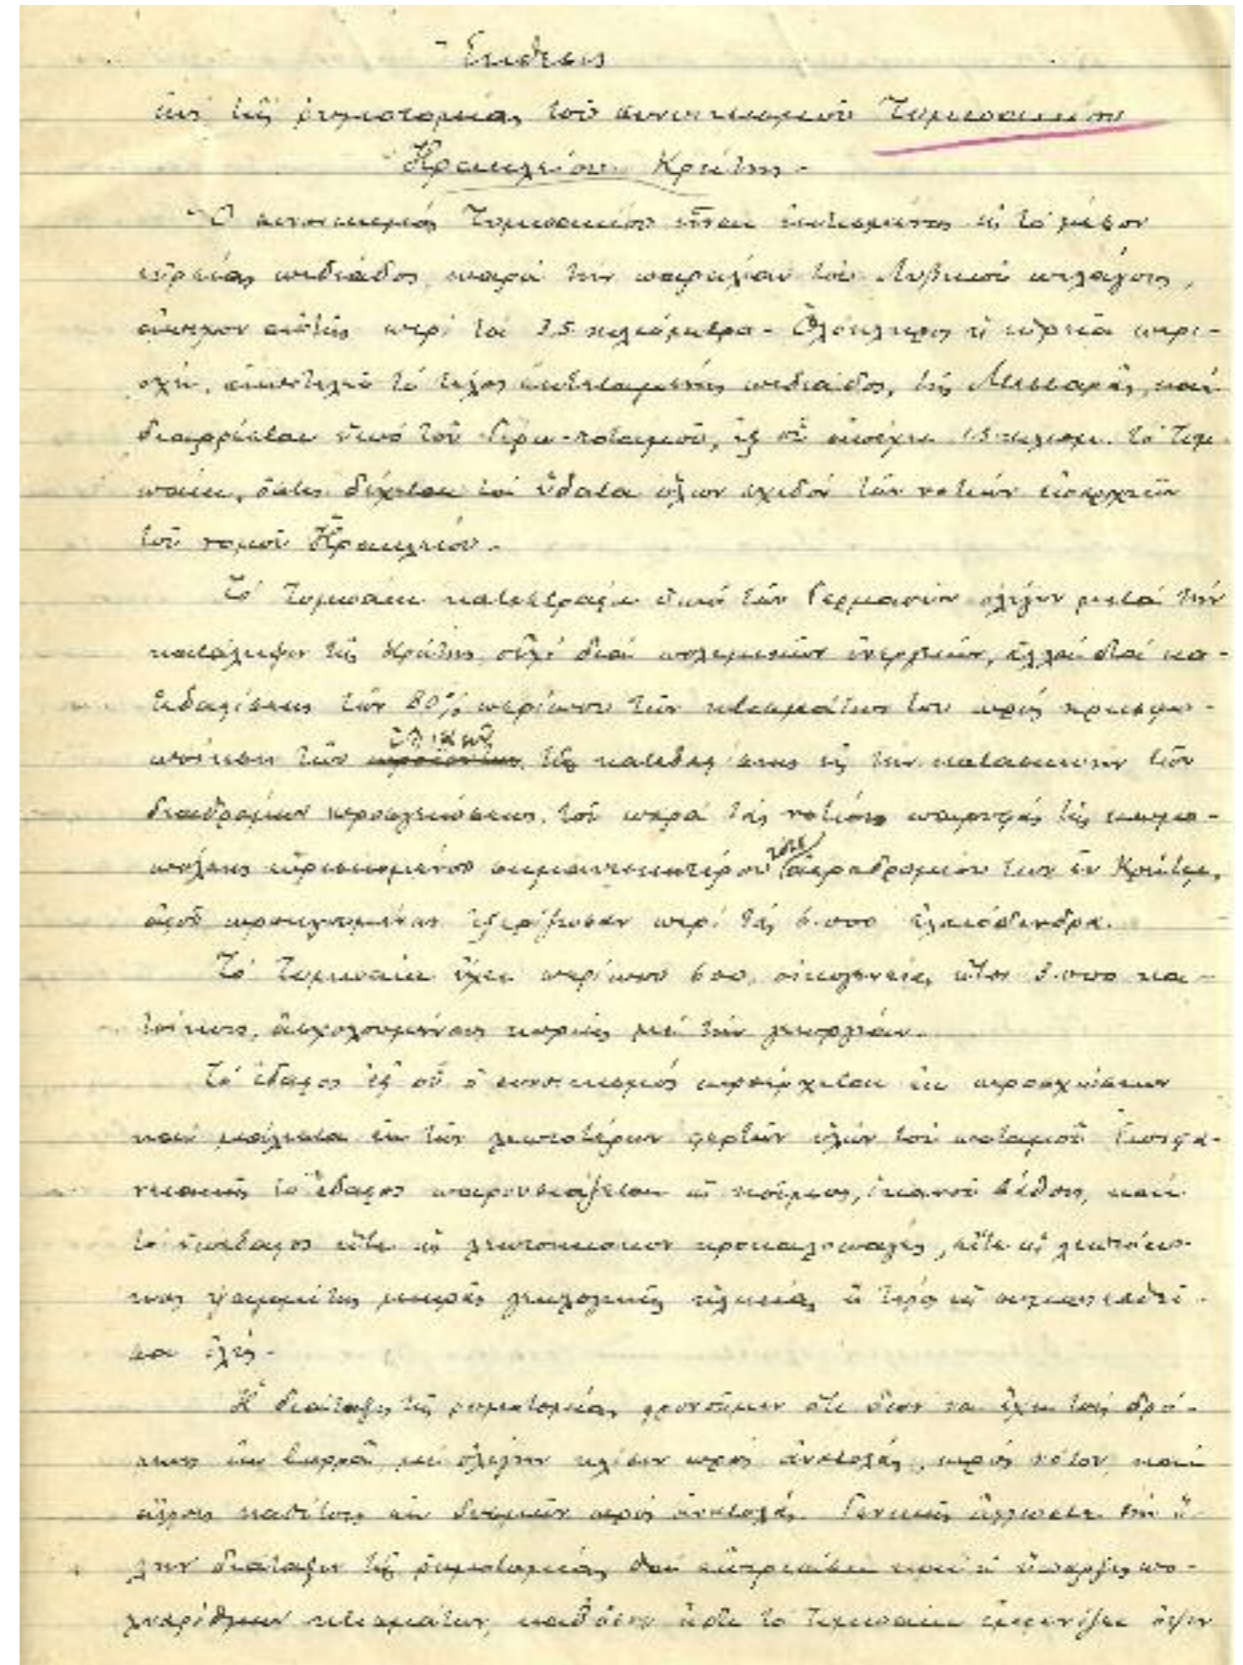 Ἔκθεσις
ἐπί τῆς ρυμοτομίας τοῦ συνοικισμοῦ Τυμπακίου
Ἡρακλείου Κρήτης -
Ὁ συνοικισμός Τυμπακίου εἶναι ἐκτισμένος εἰς τό μέσον
εὐρείας πεδιάδος παρά τήν παραλίαν τοῦ Λυβικοῦ πελάγους,
ἀπέχων αὐτῆς περί τά χιλιόμετρα - Ὁλόκληρος ἡ εὐρεῖα περι-
οχή, ἀποτελεῖ τό τέλος ἐκτεταμένης πεδιάδος, τῆς Μεσσαρᾶς, καί
διαρρέεται ὑπό τοῦ Γέρω-ποταμοῦ, ἐξ οὗ ἀπέχει χιλιομ. τό Τυμ-
πάκι, ὅστις δέχεται τά ὕδατα ὅλων σχεδόν τῶν νοτίων ἐπαρχιῶν
τοῦ νομοῦ Ἡρακλείου.
Τό Τυμπάκι κατεστράφη ὑπό τῶν Γερμανῶν ὀλίγον μετά τήν
κατάληψιν τῆς Κρήτης, οὐχί διά πολεμικῶν ἐνεργειῶν, ἀλλά διά κα-
τεδαφίσεως τῶν 80% περίπου τῶν κτισμάτων του πρός χρησιμο-
ποίησιν τῶν ὑλικῶν τῆς κατεδαφίσεως εἰς τήν κατασκευήν τῶν
διαδρόμων προσγειώσεως, τοῦ παρά τάς νοτίους παρυφάς τῆς κωμο-
πόλεως εὑρισκομένου σημαντικωτέρου τότε ἀεροδρομίου των ἐν Κρήτῃ,
ἀφοῦ προηγουμένως ἐξερίζωσαν περί τάς 6.000 ἐλαιόδενδρα.
Τό Τυμπάκι ἔχει περίπου 600 οἰκογενείας, ἤτοι 3.000 κα-
τοίκους, ἀσχολουμένους κυρίως μέ τήν γεωργίαν.
Τό ἔδαφος ἐφ' οὗ ὁ συνοικισμός προέρχεται ἐκ προσχώσεων
καί μάλιστα ἐκ τῶν λεπτοτέρων φερτῶν ὑλῶν τοῦ ποταμοῦ
τό ἔδαφος παρουσιάζεται ὡς ἱκανοῦ βάθους, καί
τό ὑπέδαφος εἴτε ὡς κροκαλοπαγές, εἴτε ὡς λεπτόκοκ-
κος ψαμμίτης μικρᾶς γεωλογικῆς ἡλικίας
ὕλης -
Ἡ διάταξις τῆς ρυμοτομίας φρονοῦμεν ὅτι δέον νά ἔχῃ τούς δρό-
μους ἐκ βορρᾶ μέ ὀλίγην κλίσιν πρός ἀνατολάς, πρός νότον, καί
ἄλλους καθέτους ἐκ δυσμῶν πρός ἀνατολάς. Γενικῶς ἄλλωστε τήν ὅ-
λην διάταξιν τῆς ρυμοτομίας θά καί ἡ ὕπαρξις πο-
λυαρίθμων κτισμάτων, καθ' ὅσον τό Τυμπάκι ἐμφανίζει ὄψιν